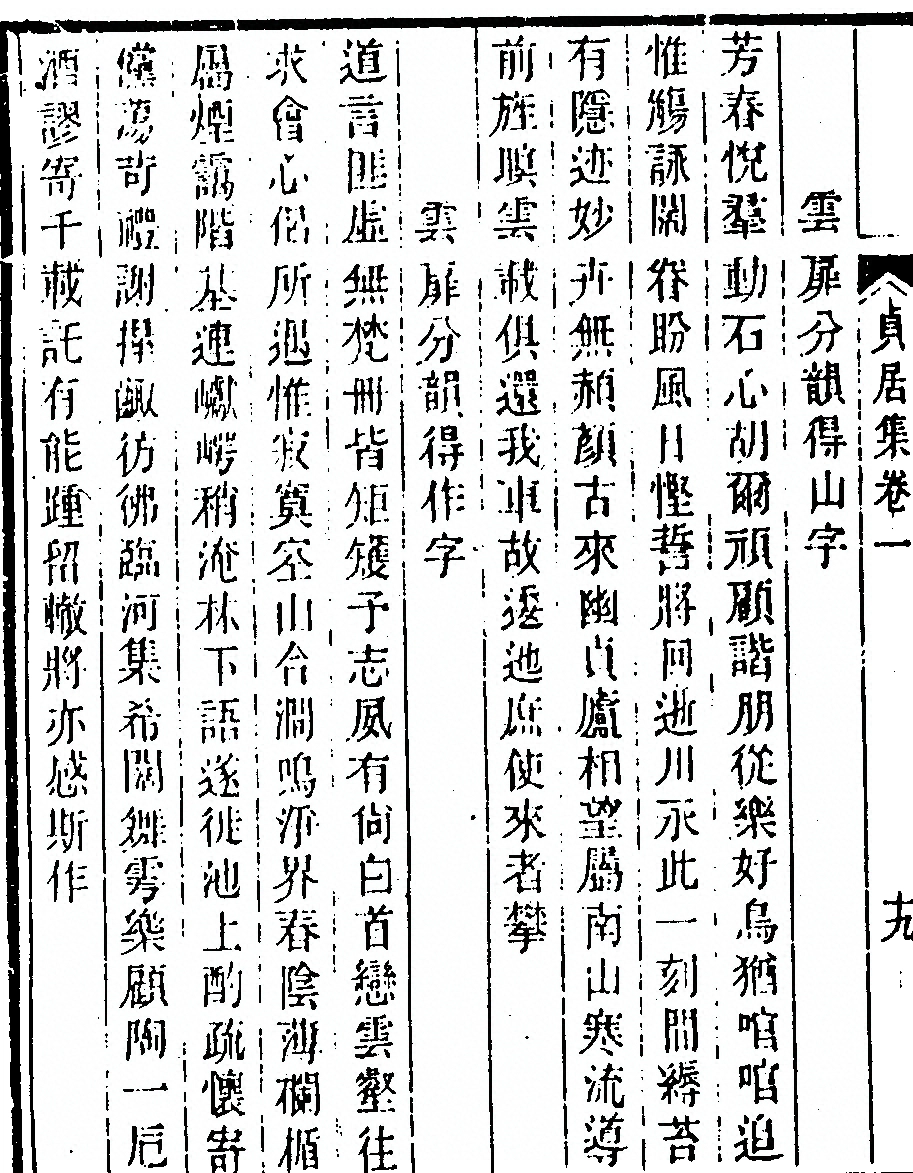 貞居集卷一　十九
雲屝分韻得山字
芳春悅羣動石心胡爾頑顧諧朋從樂好鳥猶迫
惟觴詠闋眷盼風日慳誓將同逝川永此一刻閒縟苔
有隱迹妙卉無赬顏古來幽貞廬相望屬南山寒流導
前旌暝雲載俱還我車故逶迤庶使來者攀
雲屝分韻得作字
道言匪虛無梵冊皆矩矱予志夙有尙白首戀雲壑往
求會心侶所遇惟寂寞空山合澗鳴淨界春陰薄欄楯
屬煙靄階基連巘崿稍淹林下語遂徙池上酌疏懷寄
儻蕩苛禮謝彷彿臨河集希闊舞雩樂顧陶一卮
酒謬寄千載託有能踵留轍將亦感斯作